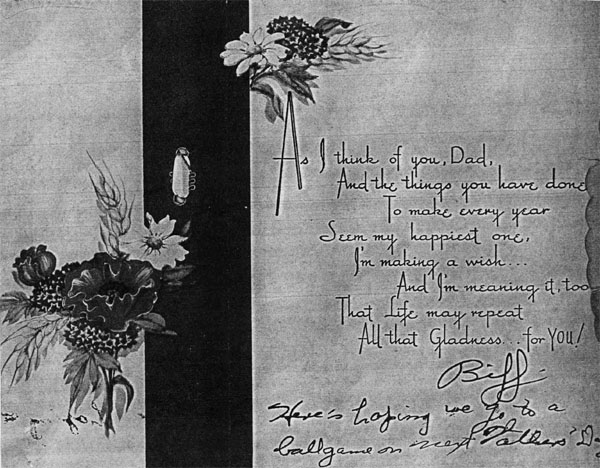 As I think of you, Dad,
And the things you have done
To make every year
Seem my happiest one,
I'm making a wish...
And I'm meaning it, too
That Life may repeat
All that Gladness... for YOU!
Biff.
Here's hoping we go to a
ballgame on next Fathers' Day